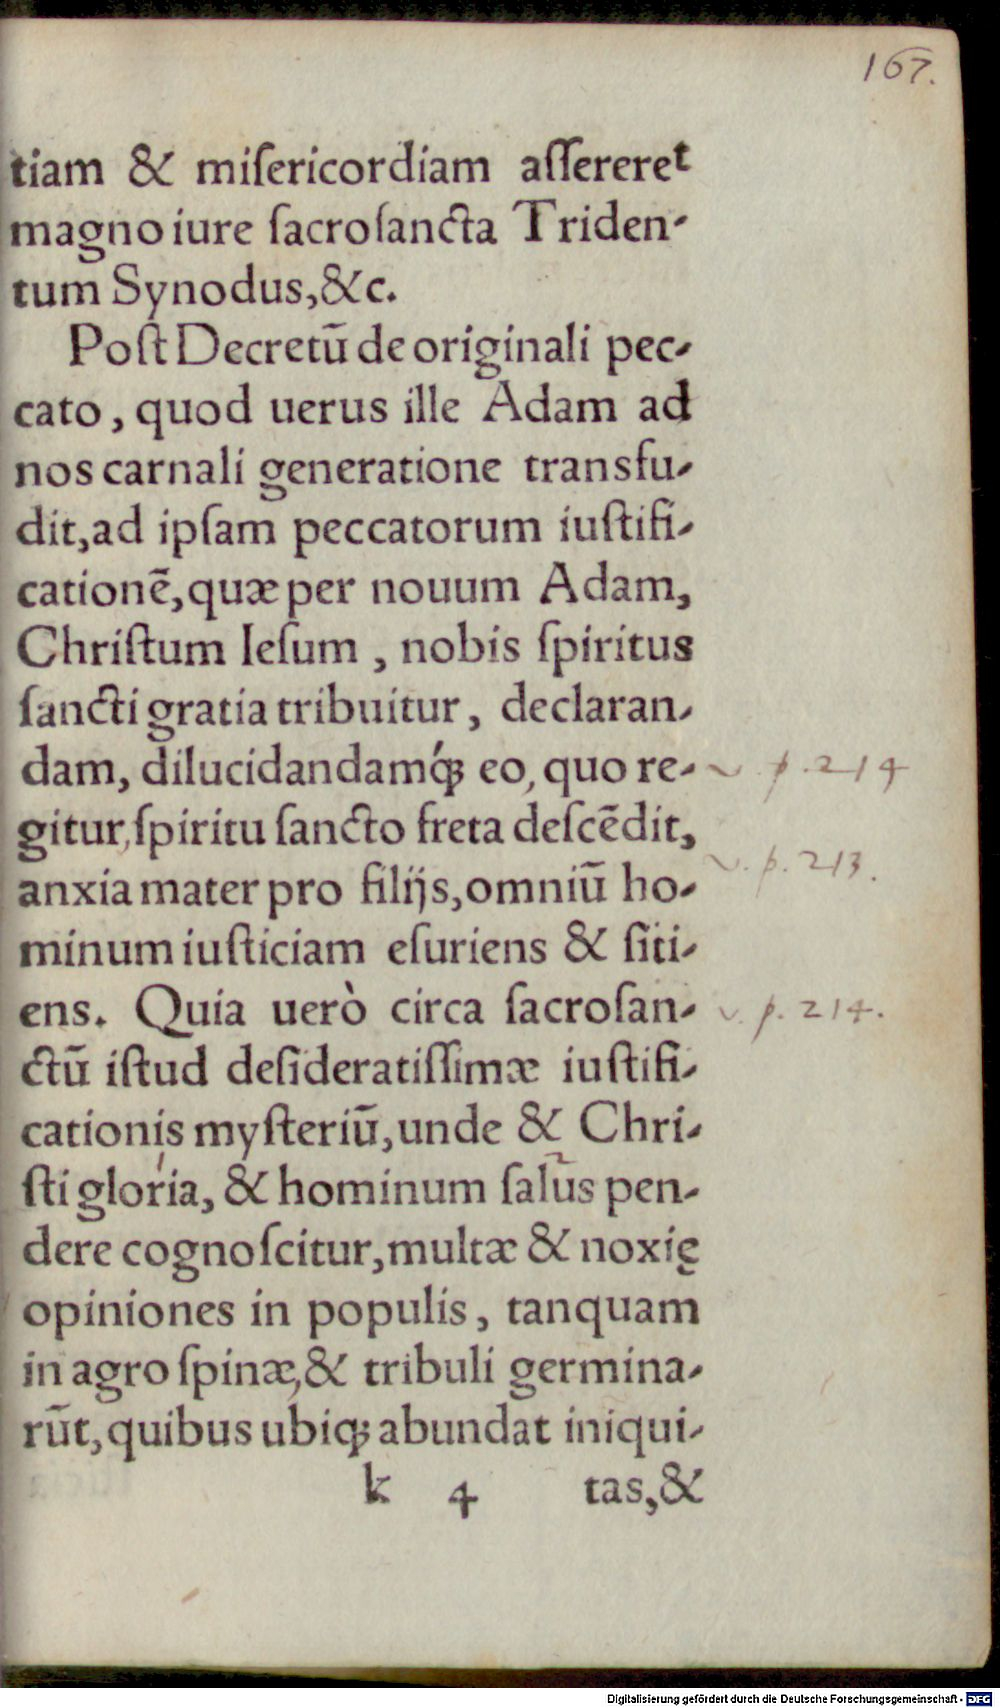 167.
tiam & miſericordiam aſſereret
magno iure ſacroſancta Triden-
tum Synodus,&c.
Poſt Decretū de originali pec-
cato, quod uerus ille Adam ad
nos carnali generatione transfu-
dit,ad ipſam peccatorum iuſtifi-
cationē,quæ per nouum Adam,
Chriſtum Ieſum, nobis ſpiritus
ſancti gratia tribuitur, declaran-
dam, dilucidandamq́ꝫ eo, quo re- v. p. 214
gitur,ſpiritu ſancto freta deſcēdit,
v. p. 213.
anxia mater pro filijs,omniū ho-
minum iuſticiam eſuriens & ſiti-
ens. Quia uerò circa ſacroſan- v. p. 214.
ctū iſtud deſideratiſſimæ iuſtifi-
cationis myſteriū,unde & Chri-
ſti gloria, & hominum ſalus pen-
dere cognoſcitur,multæ & noxię
opiniones in populis, tanquam
in agro ſpinæ,& tribuli germina-
rūt,quibus ubiqꝫ abundat iniqui-
k 4 tas,&
Digitalisierung gefördert durch die Deutsche Forschungsgemeinschaft - DFG